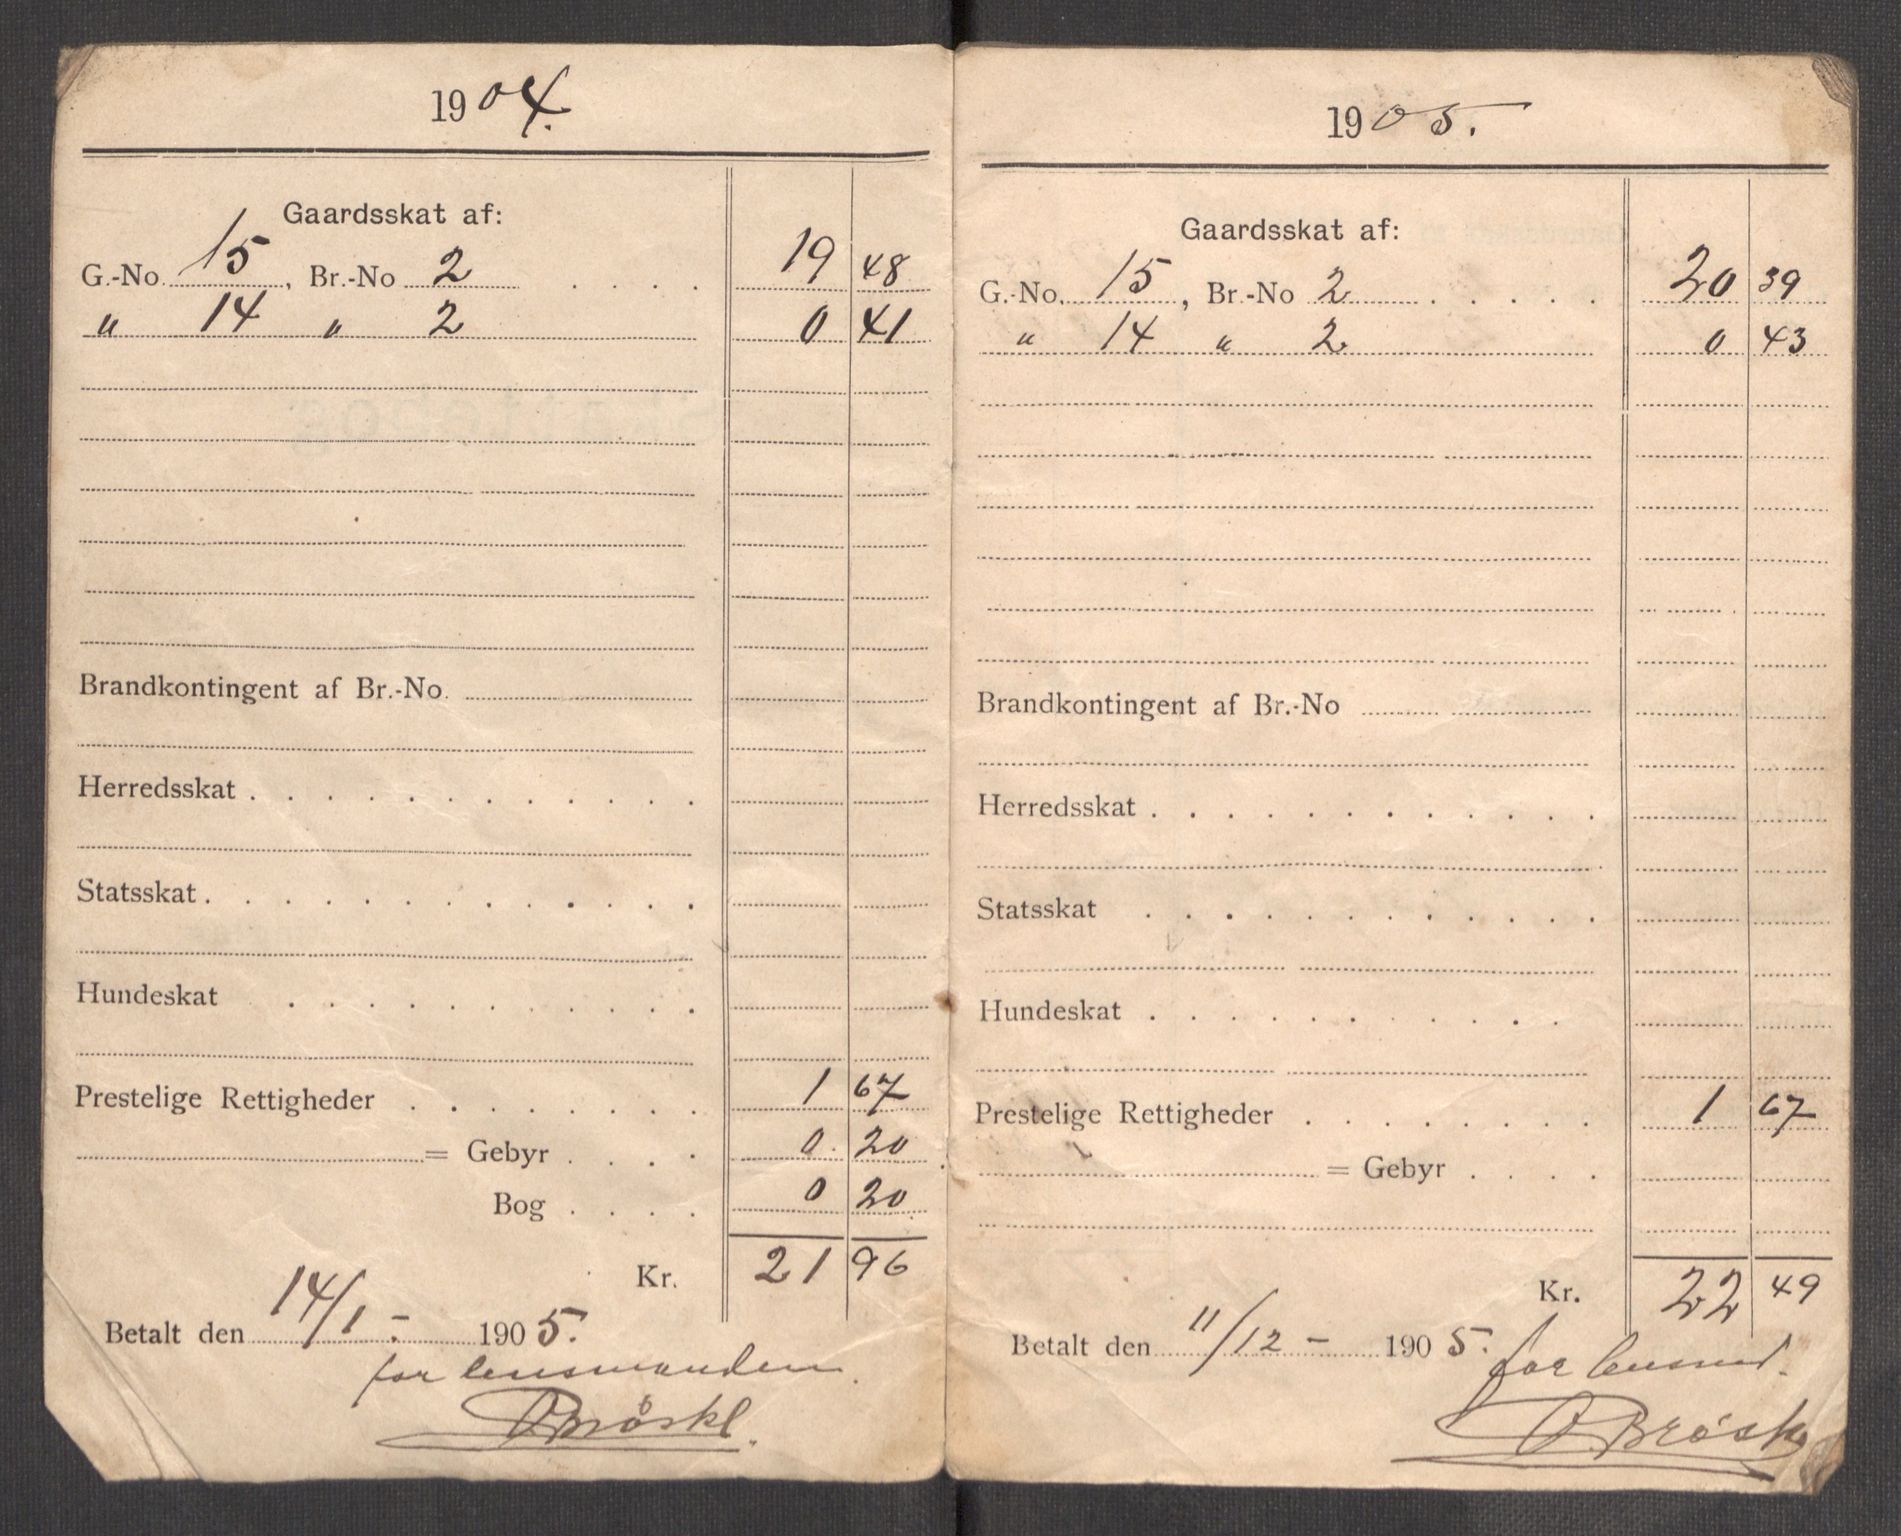 1904.
Gaardsskat af:
G.-No. 15, Br.-No 2 . . . . 19 48
" 14 " 2 0 41
Brandkontingent af Br.-No.
Herredsskat . . . . . . . . . . . .
Statsskat . . . . . . . . . . . . .
Hundeskat . . . . . . . . . . .
Prestelige Rettigheder . . . . . . . . 1 67
= Gebyr . . . . 0. 20
Bog . . . . 0 20
Kr. 21 96
Betalt den 14/1 - 1905.
for lensmanden.
1905.
Gaardsskat af:
G.-No. 15, Br.-No 2 . . . . . 20 39
" 14 " 2 0 43
Brandkontingent af Br.-No
Herredsskat . . . . . . . . . . . .
Statsskat . . . . . . . . . . . .
Hundeskat . . . . . . . . . . .
Prestelige Rettigheder . . . . . . . . 1 67
= Gebyr . . . .
Kr. 22 49
Betalt den 11/12 - 1905.
for lensmd.